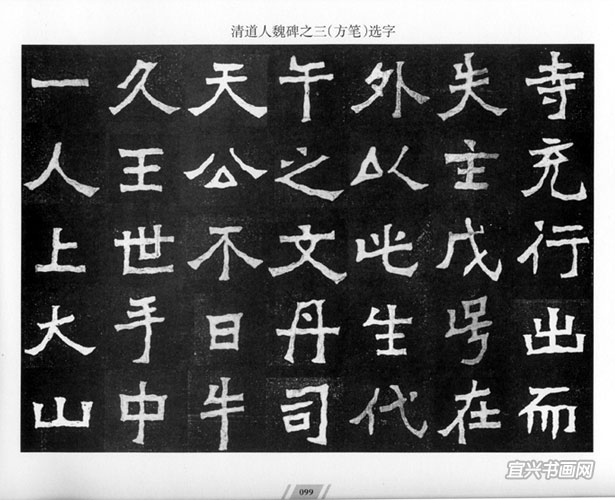 清道人魏碑之三(方笔)选字
一人上大山
久王世手中
天公不日牛
午之文丹司
外以此生代
失主戊号在
寺充行出而
099
宜兴书画网